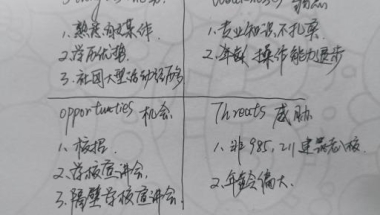 1. 熟
2. 学历优势
3. 社团大型活动经历多
1. 专业知识不扎实
2. 年龄 操作能力退步
opportunties 机会
1. 校招
2. 学校宣讲会
3. 隔壁学校宣讲会
Threats 威胁
1. 非985, 211
2. 年龄偏大